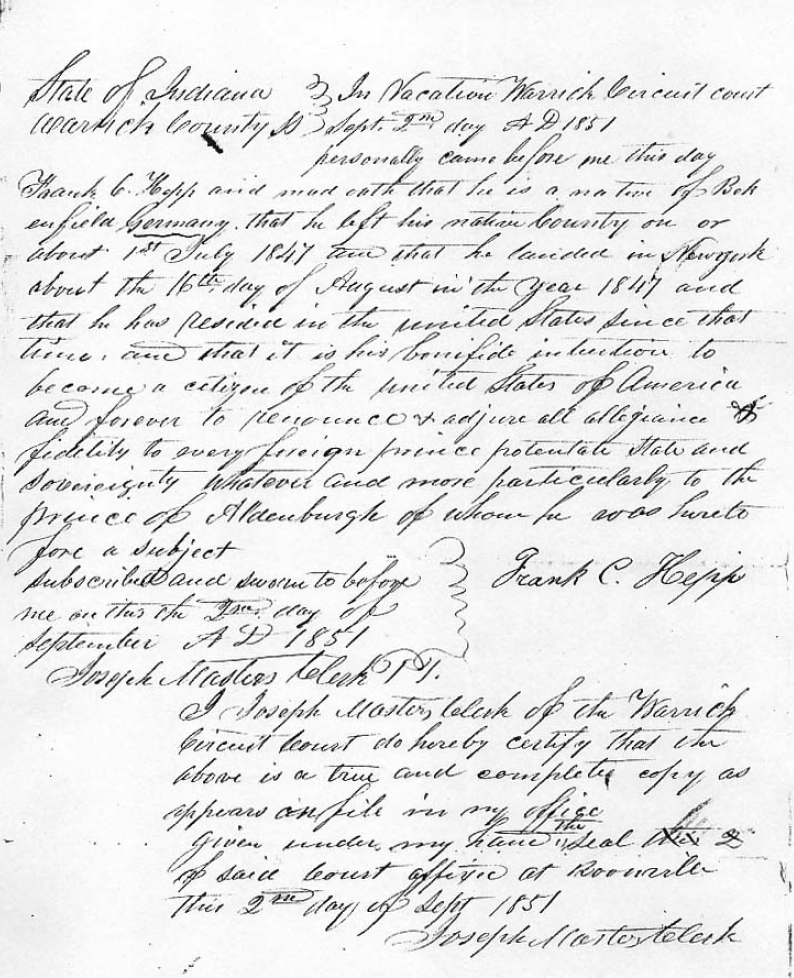 State of Indiana } In Vacation Warrick Circuit court
Warrick County SS } Sept. 2nd day A D 1851
personally came before me this day
Frank C. Hepp and mad oath that he is a native of Boh
enfield Germany. that he left his native County on or
about 1st July 1847 and that he landed in Newyork
about the 16th day of August in the Year 1847 and
that he has resided in the united States since that
time. and that it is his bonifide intention to
become a citizen of the united States of America
and forever to renounce & adjure all allegiance &
fidelity to every foreign prince potentate State and
sovereignty whatever and more particularly to the
prince of Aldenburgh of whom he was hereto
fore a subject
subscribed and sworn to before } Frank C. Hepp
me on this the 2nd day of
September A D 1851
Joseph Masters Clerk
I Joseph Masters Clerk of the Warrick
Circuit Court do hereby certify that the
above is a true and complete copy as
appears on file in my office
given under my hand the seal
of said Court affixed at Boonville
this 2nd day of Sept 1851
Joseph Masters Clerk